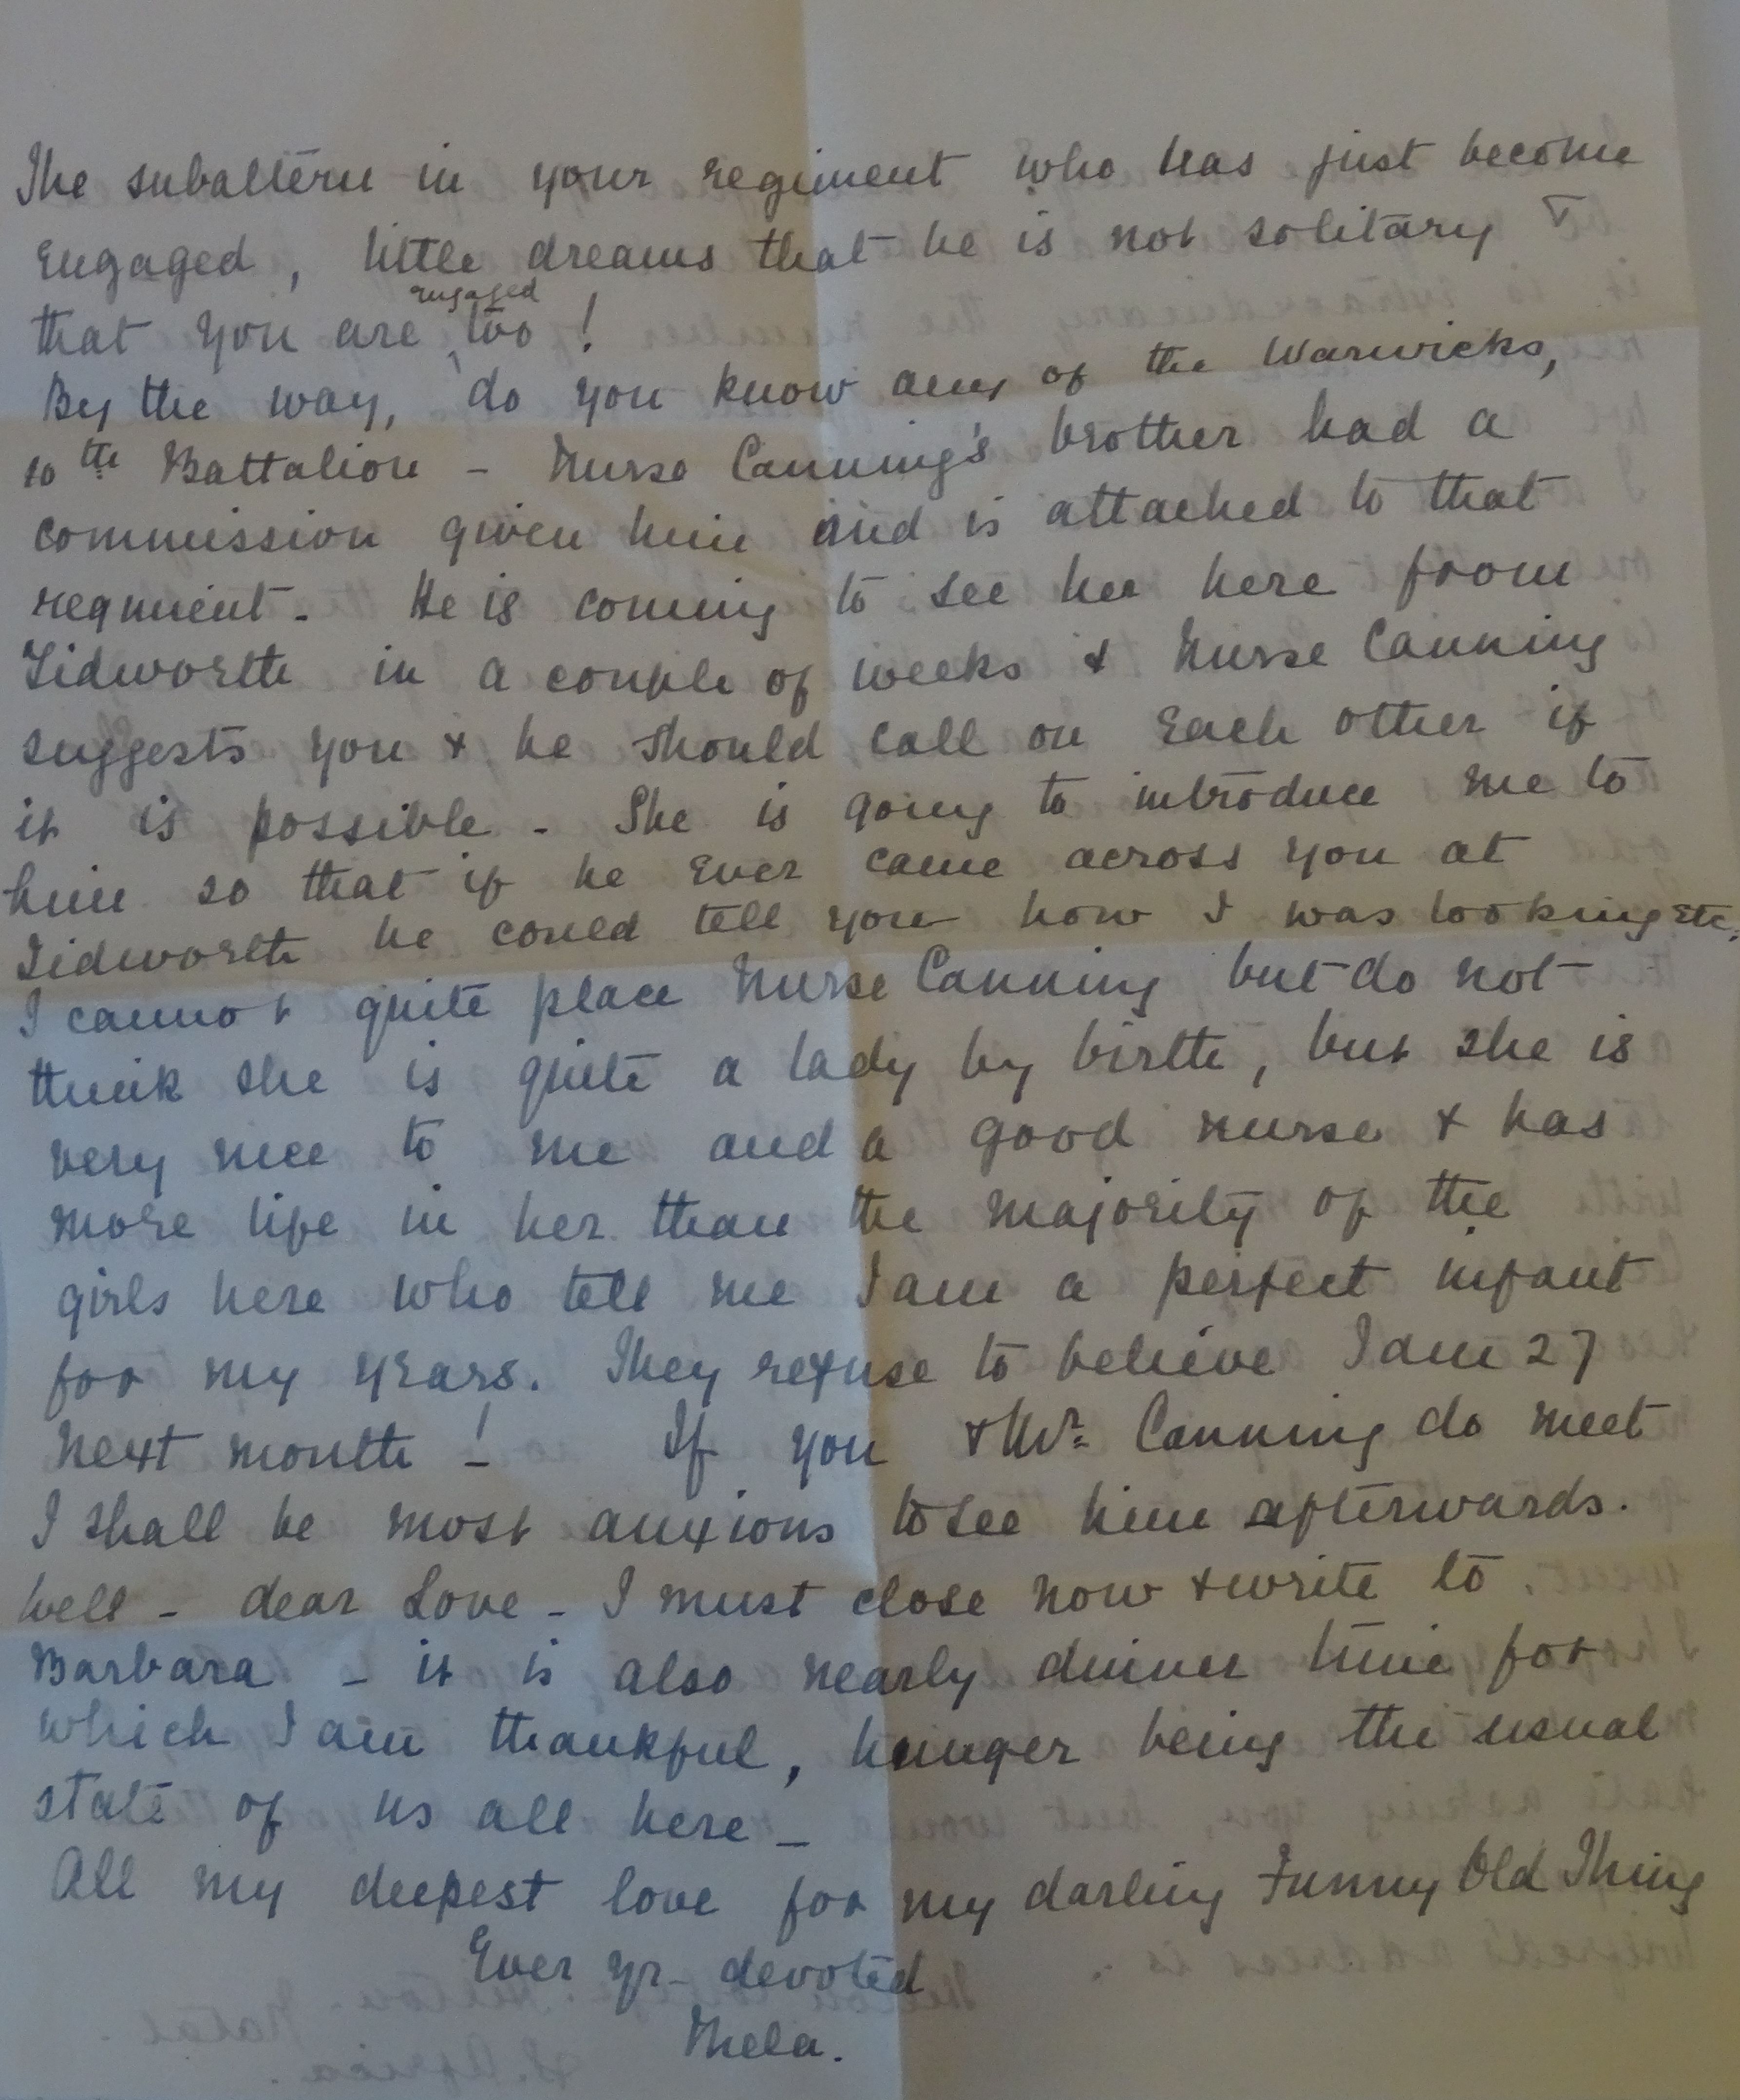 The subaltern in your regiment who has just become
Engaged, little dreams that he is not solitary &
that you are engaged too!
By the way, do you know any of the Warwicks,
10th Battalion - Nurse Canning's brother had a
commission given him and is attached to that
regiment. He is coming to see her here from
Tidworth in a couple of weeks & Nurse Canning
suggests you & he should call on Each other if
it is possible - She is going to introduce me to
him so that if he Ever came across you at
Tidworth he could tell you how I was looking etc.
I cannot quite place Nurse Canning but do not
think she is quite a lady by birth, but she is
very nice to me and a good nurse & has
more life in her than the majority of the
girls here who tell me I am a perfect infant
for my years. They refuse to believe I am 27
next month! If you & Mr. Canning do meet
I shall be most anxious to see him afterwards.
Well - dear Love - I must close now & write to
Barbara - it is also nearly dinner time for
which I am thankful, hunger being the usual
state of us all here -
All my deepest love for my darling Funny Old Thing
Ever yr- devoted